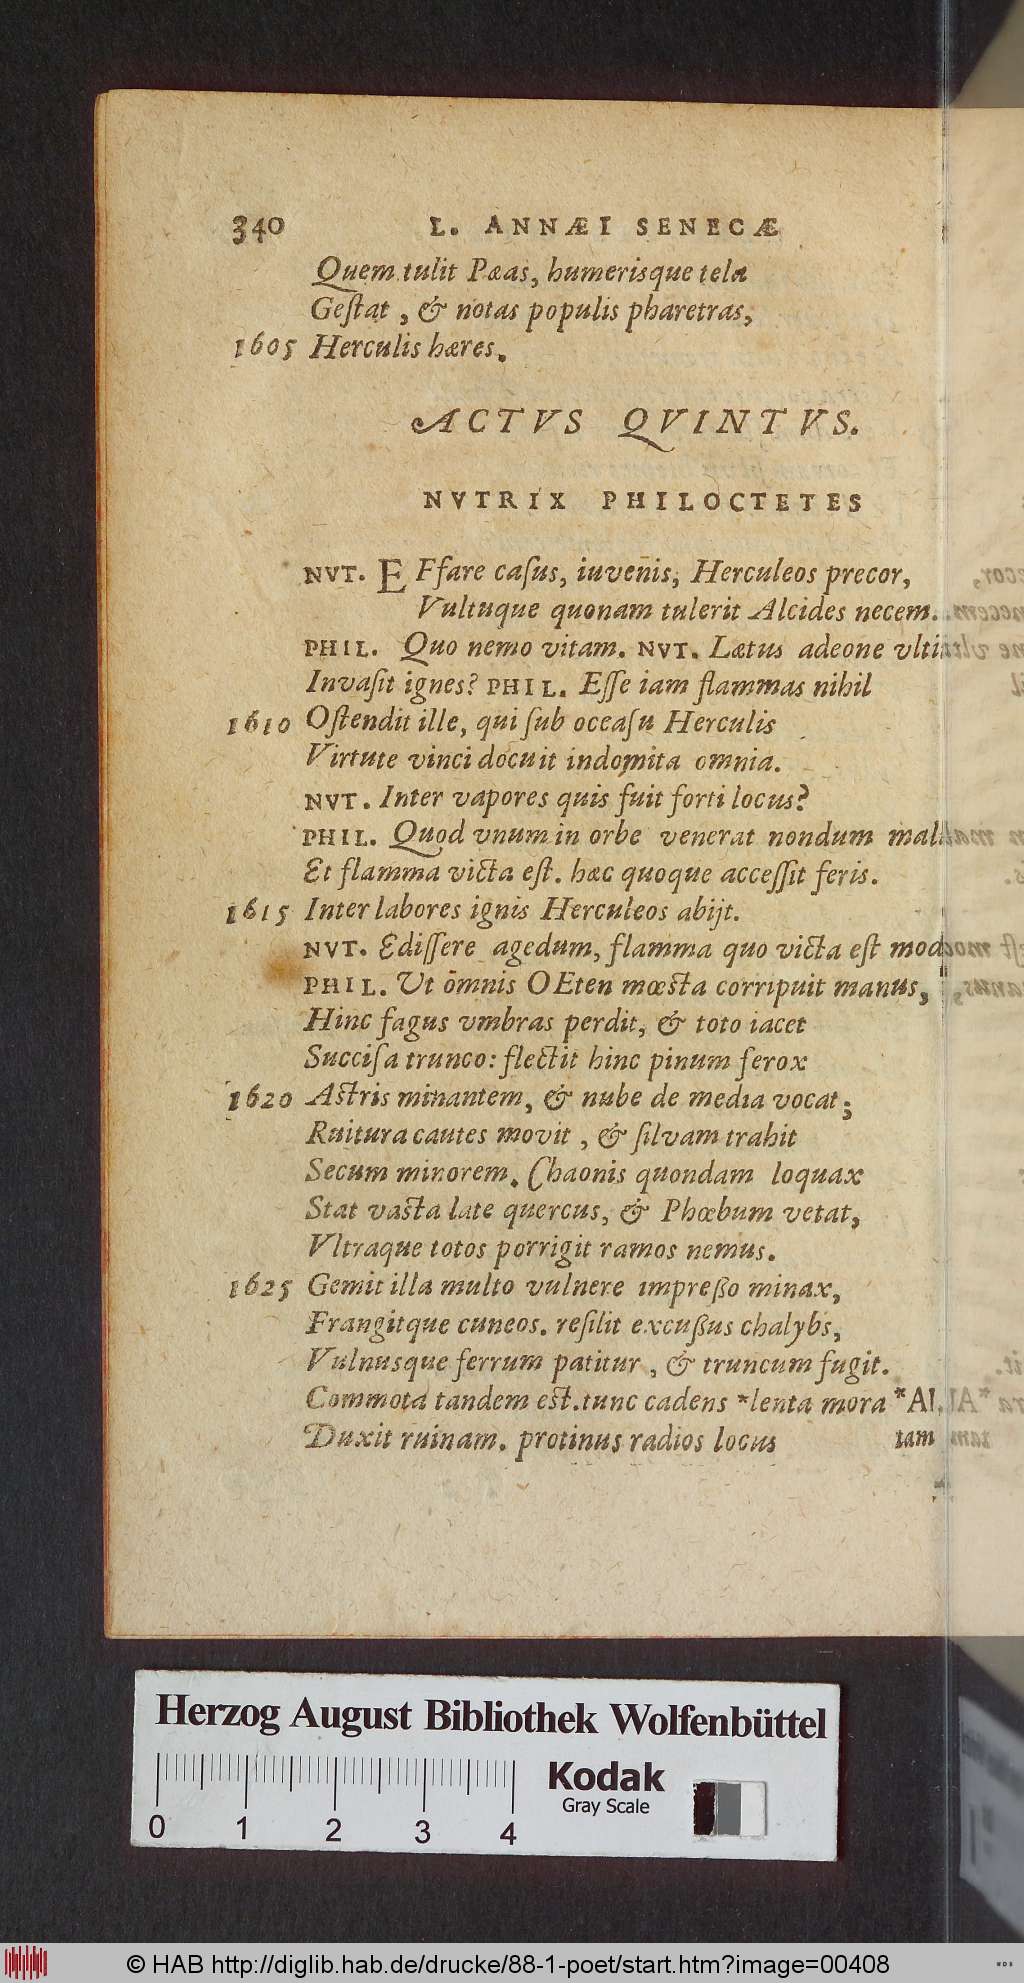 340 L. ANNÆI SENECÆ
Quem tulit Pæas, humerisque tela
Geſtat, & notas populis pharetras,
1605 Herculis hæres.
ACTVS QVINTVS.
NVTRIX PHILOCTETES
NVT. EFfare caſus, iuvenis, Herculeos precor,
Vultuque quonam tulerit Alcides necem.
PHIL. Quo nemo vitam. NVT. Lætus adeone vlti
Invaſit ignes? PHIL. Eſſe iam flammas nihil
1610 Oſtendit ille, qui ſub occaſu Herculis
Virtute vinci docuit indomita omnia.
NVT. Inter vapores quis fuit forti locus?
PHIL. Quod vnum in orbe venerat nondum mal
Et flamma victa eſt. hæc quoque acceſſit feris.
1615 Inter labores ignis Herculeos abijt.
NVT. Ediſſere agedum, flamma quo victa eſt mod
PHIL. Ut õmnis OEten mœsta corripuit manus,
Hinc fagus vmbras perdit, & toto iacet
Succiſa trunco: flectit hinc pinum ferox
1620 Astris minantem, & nube de media vocat;
Ruitura cautes movit, & ſilvam trahit
Secum minorem. Chaonis quondam loquax
Stat vasta late quercus, & Phœbum vetat,
Vltraque totos porrigit ramos nemus.
1625 Gemit illa multo vulnere impreßo minax,
Frangitque cuneos. reſilit excußus chalybs,
Vulnusque ferrum patitur, & truncum fugit.
Commota tandem est. tunc cadens *lenta mora *AL
Duxit ruinam. protinus radios locus tam
Herzog August Bibliothek Wolfenbüttel
Kodak
Gray Scale
0 1 2 3 4
© HAB http://diglib.hab.de/drucke/88-1-poet/start.htm?image=00408